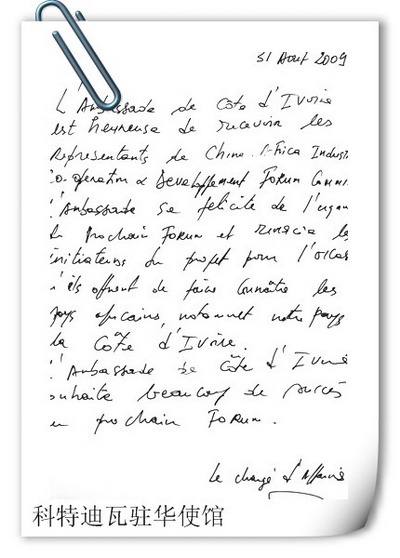 31 Aout 2009
L'Ambassade de Côte d'Ivoire
est heureuse de recevoir les
Représentants de China Africa Industr
Co-operation & Developpement Forum Comm
L'Ambassade se félicite de l'organ
du Prochain Forum et remercie les
initiateurs du projet pour l'occas
qu'ils offrent de faire connaître les
pays africains, notamment notre pays
la Côte d'Ivoire.
L'Ambassade de Côte d'Ivoire
souhaite beaucoup de succès
au prochain Forum.
Le chargé d'Affaires
科特迪瓦驻华使馆